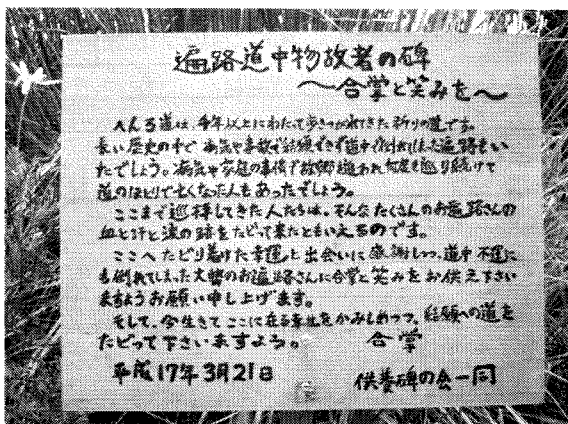 遍路道中物故者の碑
～合掌と笑みを～
へんろ道は、千年以上にわたって歩きつがれてきた祈りの道です。
長い歴史の中で、病気や事故で結願できず道中で倒れてしまった遍路もい
たでしょう。病気や家庭の事情で故郷を追われ何度も巡り続けて
道のほとりで亡くなった人もあったでしょう。
ここまで巡拝してきた人たちは、そんなたくさんのお遍路さんの
血と汗と涙の跡をたどって来たともいえるのです。
ここへたどり着けた幸運と出会いに感謝しつつ、道中不運に
も倒れてしまった大勢のお遍路さんに合掌と笑みをお供え下さい
ますようお願い申し上げます。
そして、今生きてここに在る幸せをかみしめつつ、結願への道を
たどって下さいますよう。 合掌
平成17年3月21日 供養碑の会一同